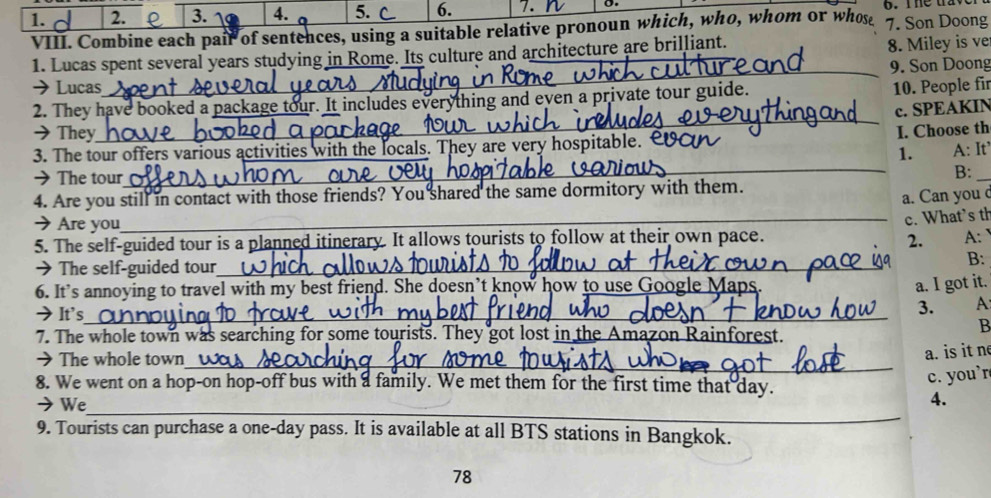 1. d 2. e 3. 4. g 5. c 6. 7. h
VIII. Combine each pair of sentences, using a suitable relative pronoun which, who, whom or whose
1. Lucas spent several years studying in Rome. Its culture and architecture are brilliant.
→ Lucas spent several years studying in Rome which culture and
2. They have booked a package tour. It includes everything and even a private tour guide.
→ They have booked a package tour which includes everything and
3. The tour offers various activities with the locals. They are very hospitable. evan
→ The tour offers whom are very hospitable various
4. Are you still in contact with those friends? You shared the same dormitory with them.
→ Are you
5. The self-guided tour is a planned itinerary. It allows tourists to follow at their own pace.
→ The self-guided tour which allows tourists to follow at their own pace is a
6. It's annoying to travel with my best friend. She doesn't know how to use Google Maps.
→ It's annoying to trave with my best friend who doesn't know how
7. The whole town was searching for some tourists. They got lost in the Amazon Rainforest.
→ The whole town was searching for some tourists who got lost
8. We went on a hop-on hop-off bus with a family. We met them for the first time that day.
→ We
9. Tourists can purchase a one-day pass. It is available at all BTS stations in Bangkok.
78
7. Son Doong
8. Miley is ve
9. Son Doong
10. People fin
c. SPEAKIN
I. Choose th
1. A: It'
B:
a. Can you d
c. What's th
2. A:
B:
a. I got it.
3. A
B
a. is it n
c. you'r
4.